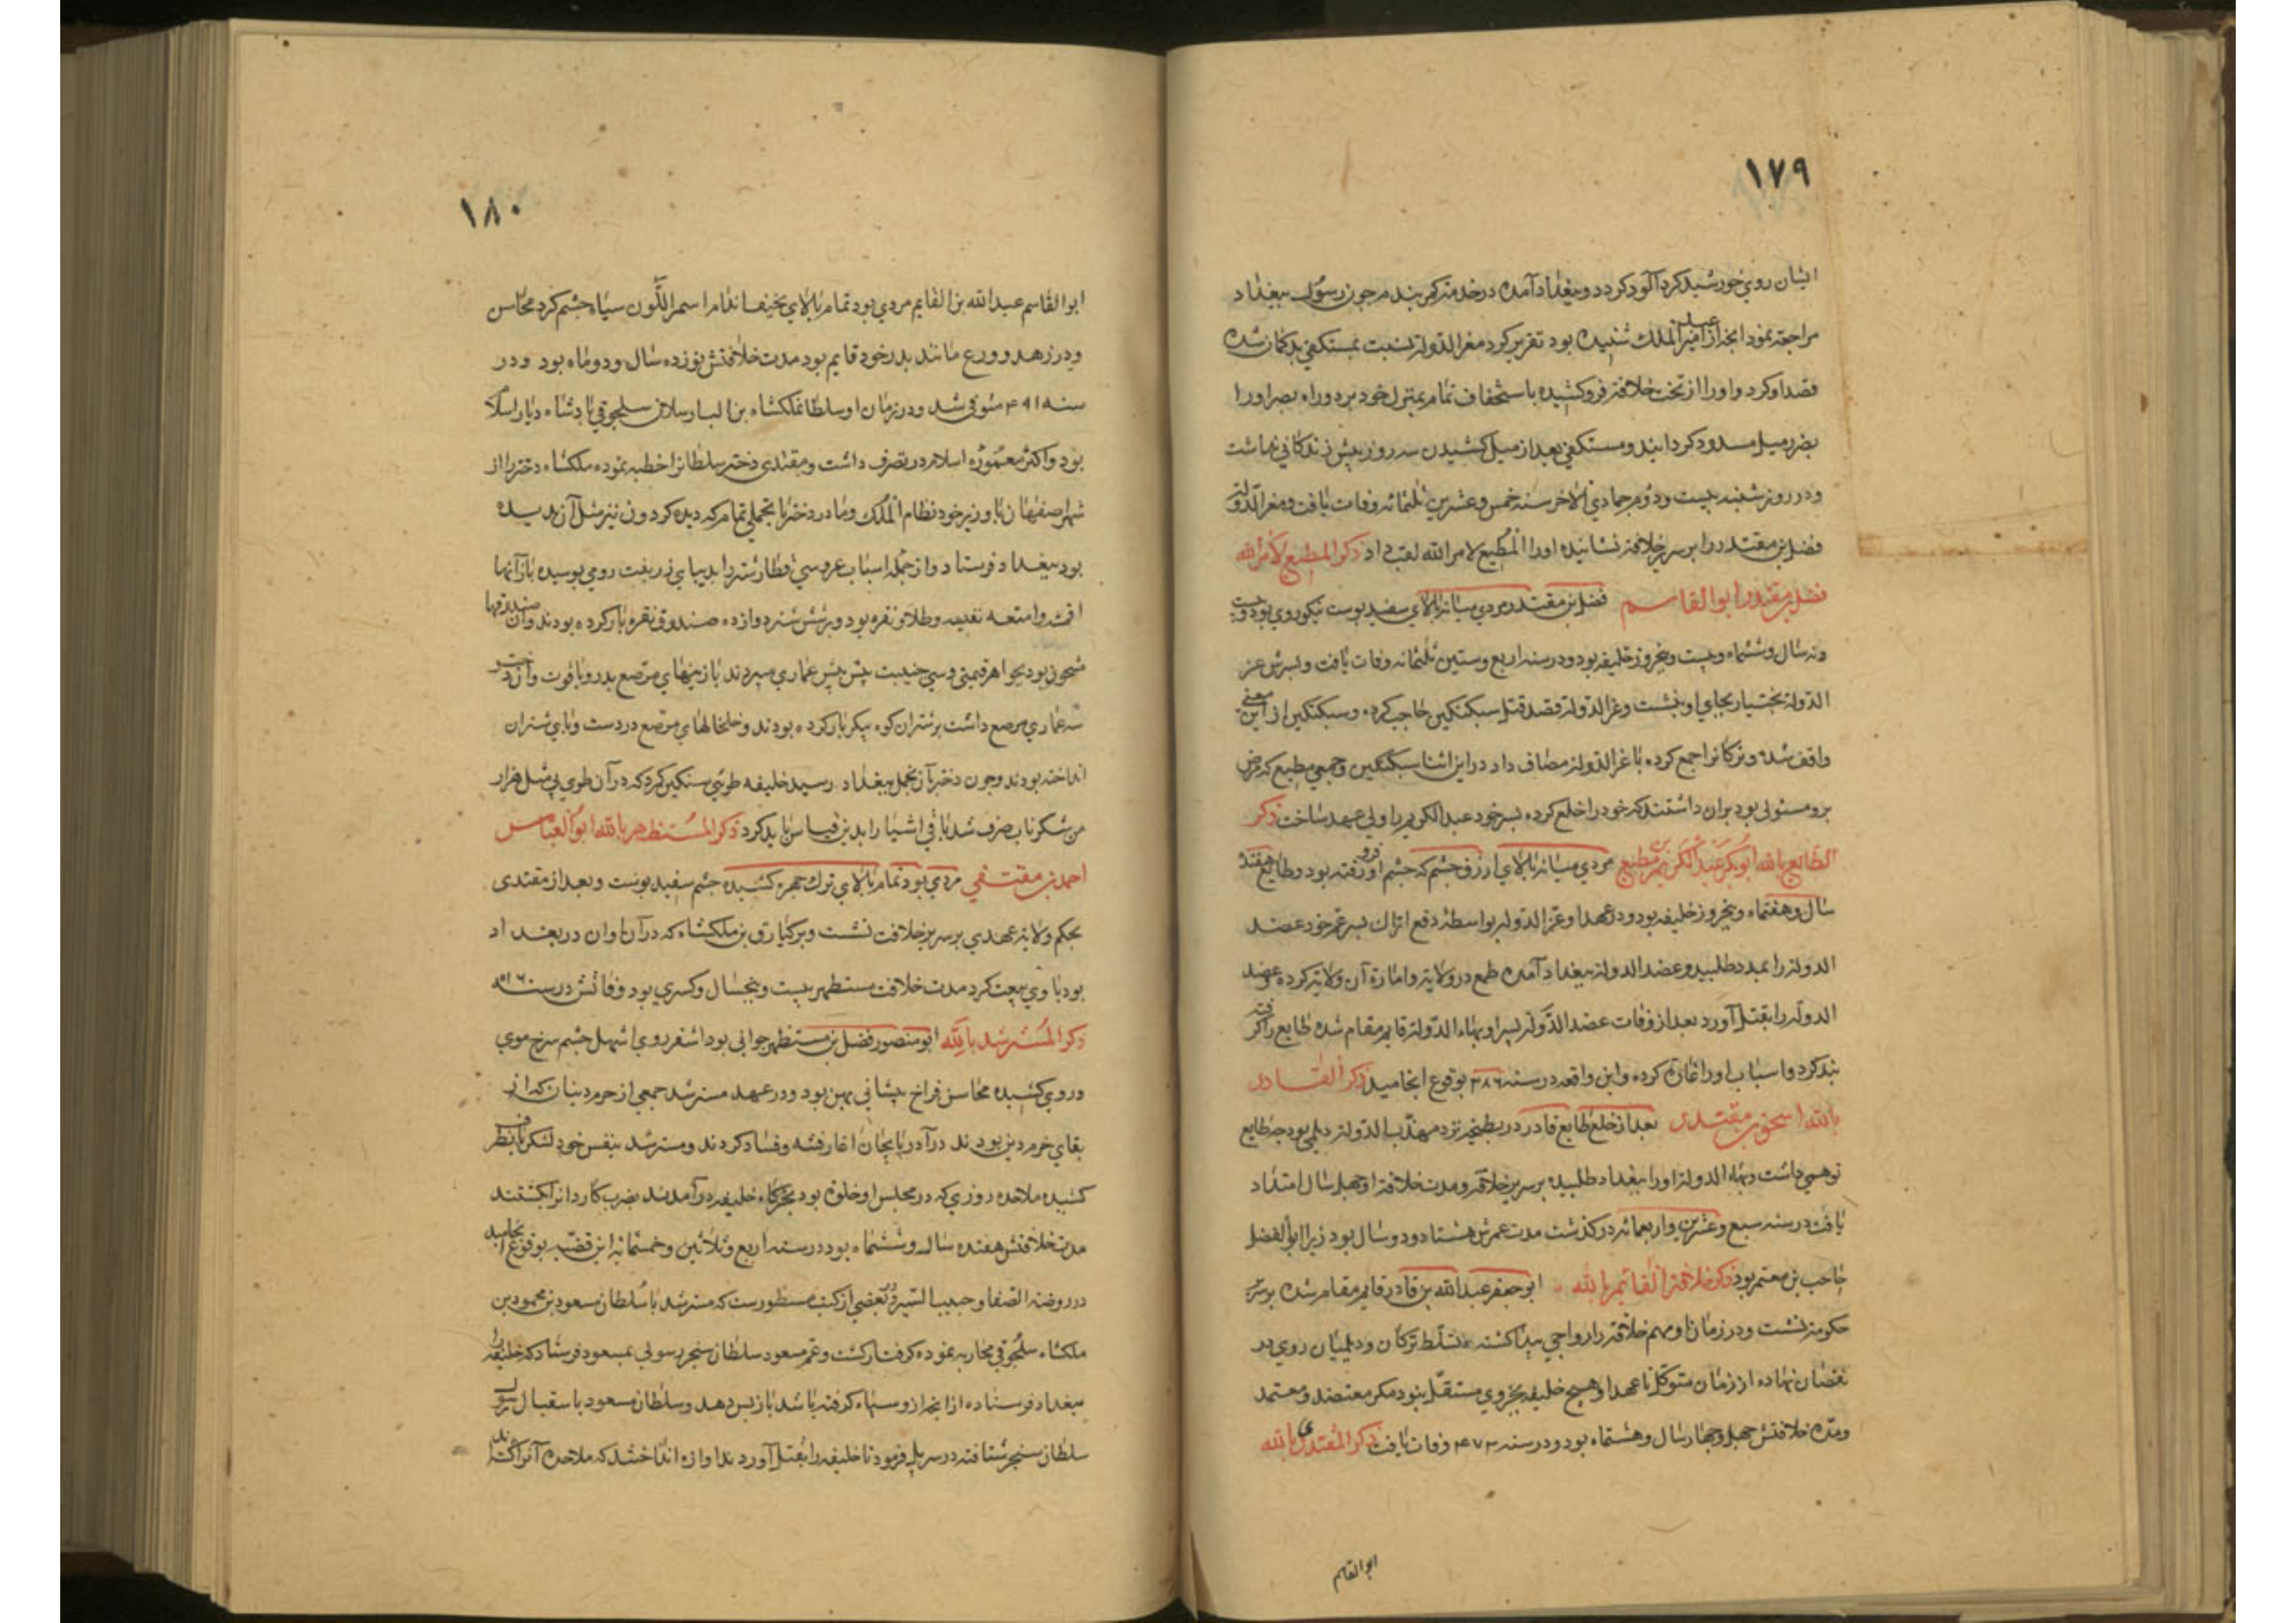 ١٧٩
ایشان روی خورشید کرد آلود کردد و ببغداد آمده در خدمت کمر بندم چون رسول ببغداد
مراجعة نمود آنچه از امیر عبد الملك شنیده بود تقریر کرد معز الدولة نسبت بمستکفی بدکمان شده
قصد او کرد و او را از تخت خلافة فرو کشیده باستخفاف تمام بمنزل خود برد و راه بصر او را
بضرر میل مسدود کردانید و مستکفی بعد از میل کشیدن سه روز بیش زندکانی نداشت
و در روز شنبه بیست و دوم جمادی الاخر سنه خمس و عشرین ثلثمائه وفات یافت و معز الدولة
فضل بن مقتدر را بر سریر خلافة نشانیده او را المطیع لامر الله لقب داد ذکر المطیع لامر الله
فضل بن مقتدر ابو القاسم فضل بن مقتدر مردی میانه بالای سفید پوست نیکوروی بود و بیست
و نه سال و ششماه و بیست و پنجروز خلیفه بود و در سنه اربع و ستین ثلثمائه وفات یافت و پسرش عز
الدولة بختیار بجای او بنشست و عز الدولة قصد قتل سبکتکین حاجب کرده و سبکتکین از این معنی
واقف شده و ترکانرا جمع کرده با عز الدولة مصاف داد در این اثنا سبکتکین و جمعی مطیع که مرض
برو مستولی بود بران داشتند که خود را خلع کرده پسر خود عبد الکریم را ولی عهد ساخت ذکر
الطایع بالله ابوبکر عبد الکریم بن مطیع مردی میانه بالای ازرق چشم که چشم او فرو رفته بود و طایع هفده
سال و هفتماه و پنجروز خلیفه بود و در عهد او عز الدولة بواسطه دفع اتراك پسر عم خود عضد
الدولة را بمدد طلبید و عضد الدولة ببغداد آمده طمع در ولایة و امارة آن ولایة کرده عضد
الدوله را بقتل آورد بعد از وفات عضد الدولة پسر او بهاء الدولة قایم مقام شده طایع را کرفته
بند کرد و اسباب او را غارة کرده و این واقعه در سنه ٣٨٦ بوقوع انجامید ذکر القادر
بالله اسحق بن مقتدی بعد از خلع طایع قادر در بطیحه نزد مهذب الدولة دیلمی بود چه طایع
توهمی داشت و بهاء الدولة او را ببغداد طلبیده بر سریر خلافة و مدت خلافة او چهل سال امتداد
یافت در سنه سبع و عشرین و اربعمائه در کذشت مدت عمرش هشتاد و دو سال بود زیرا ابو الفضل
حاجب بن معتمر بود ذکر خلافة القائم بالله ابو جعفر عبد الله بن قادر قایم مقام شده بر سریر
حکومة نشست و در زمان او مهم خلافة را رواجی پیدا کشته تسلط ترکان و دیلمیان روی در
نقصان نهاده از زمان متوکل تا عهد او هیچ خلیفه بجز وی مستقل نبود مکر معتضد و معتمد
و مدة خلافتش چهل و چهار سال و هشتماه بود و در سنه ٤٧٣ وفات یافت ذکر المقتدی بالله
ابو القاسم
١٨٠
ابو القاسم عبد الله بن القایم مردی بود تمام بالای نحیف اندام اسمر اللّون سیاه چشم کرد محاسن
و در زهد و ورع مانند پدر خود قایم بود مدت خلافتش نوزده سال و دو ماه بود و در
سنه ٤٩١ متوفی شد و در زمان او سلطان ملکشاه بن الب ارسلان سلجوقی پادشاه دیار اسلام
بود و اکثر معموره اسلام در تصرف داشت و مقتدی دختر سلطانرا خطبه نموده ملکشاه دختر را از
شهر اصفهان با وزیر خود نظام الملك و مادر دختر با تجملی تمام که دیده کردون نیز مثل آن ندیده
بود ببغداد فرستاد و از جمله اسباب عروسی قطار شتر را بدیبای زربفت رومی پوسیده بار آنها
اقمشه و امتعه نفیسه و طلا و نقره بود و بر شش شتر دوازده صندوق نقره بار کرده بودند و آن صندوقها
مشحون بود بجواهر قیمتی و سی جنیبت پیش پیش عماری میبردند با زینهای مرصع بدر و یاقوت و آن دختر
سه عماری مرصع داشت بر شتران کوه پیکر بار کرده بودند و خلخالهای مرصع در دست و پای شتران
انداخته بودند و چون دختر بآن تجمل ببغداد رسید خلیفه طویی سنکین کرد که در آن طوی چهل هزار
من شکر ناب صرف شد باقی اشیا را بدین قیاس باید کرد ذکر المستظهر بالله ابو العباس
احمد بن مقتفی مردی بود تمام بالای ترك چهره کشیده چشم سفید پوست و بعد از مقتدی
بحکم ولایة عهدی بر سریر خلافت نشست و برکیارق بن ملکشاه که در آن اوان در بغداد
بود با وی بیعت کرد مدت خلافت مستظهر بیست و پنجسال و کسری بود وفاتش در سنه ٥١٦
ذکر المسترشد بالله ابو منصور فضل بن مستظهر جوانی بود اشقر روی اشهل چشم سرخ موی
و روی کشیده محاسن فراخ پیشانی پهن بود و در عهد مسترشد جمعی از خرم دینان که از
بقای خرم دین بودند در آذربایجان اغاز فتنه و فساد کردند و مسترشد بنفس خود لشکر بآنطرف
کشیده ملاحده روزی که در مجلس او خلوة بود بخرکاه خلیفه در آمدند بضرب کارد انرا بکشتند
مدت خلافتش هفده سال و ششماه بود در سنه اربع و ثلاثین و خمسمائه این قضیه بوقوع انجامید
در روضة الصفا و حبیب السیر و در بعضی از کتب مسطورست که مسترشد با سلطان مسعود بن محمود بن
ملکشاه سلجوقی محاربه نموده کرفتار کشت و عم مسعود سلطان سنجر رسولی بمسعود فرستاد که خلیفه را
ببغداد فرستاده از آنچه از و سپاه کرفته باشد باز پس دهد و سلطان مسعود باستقبال رسول
سلطان سنجر شتافته در سر پل فرمود تا خلیفه را بقتل آوردند اوازه انداختند که ملاحده آنرا کشتند